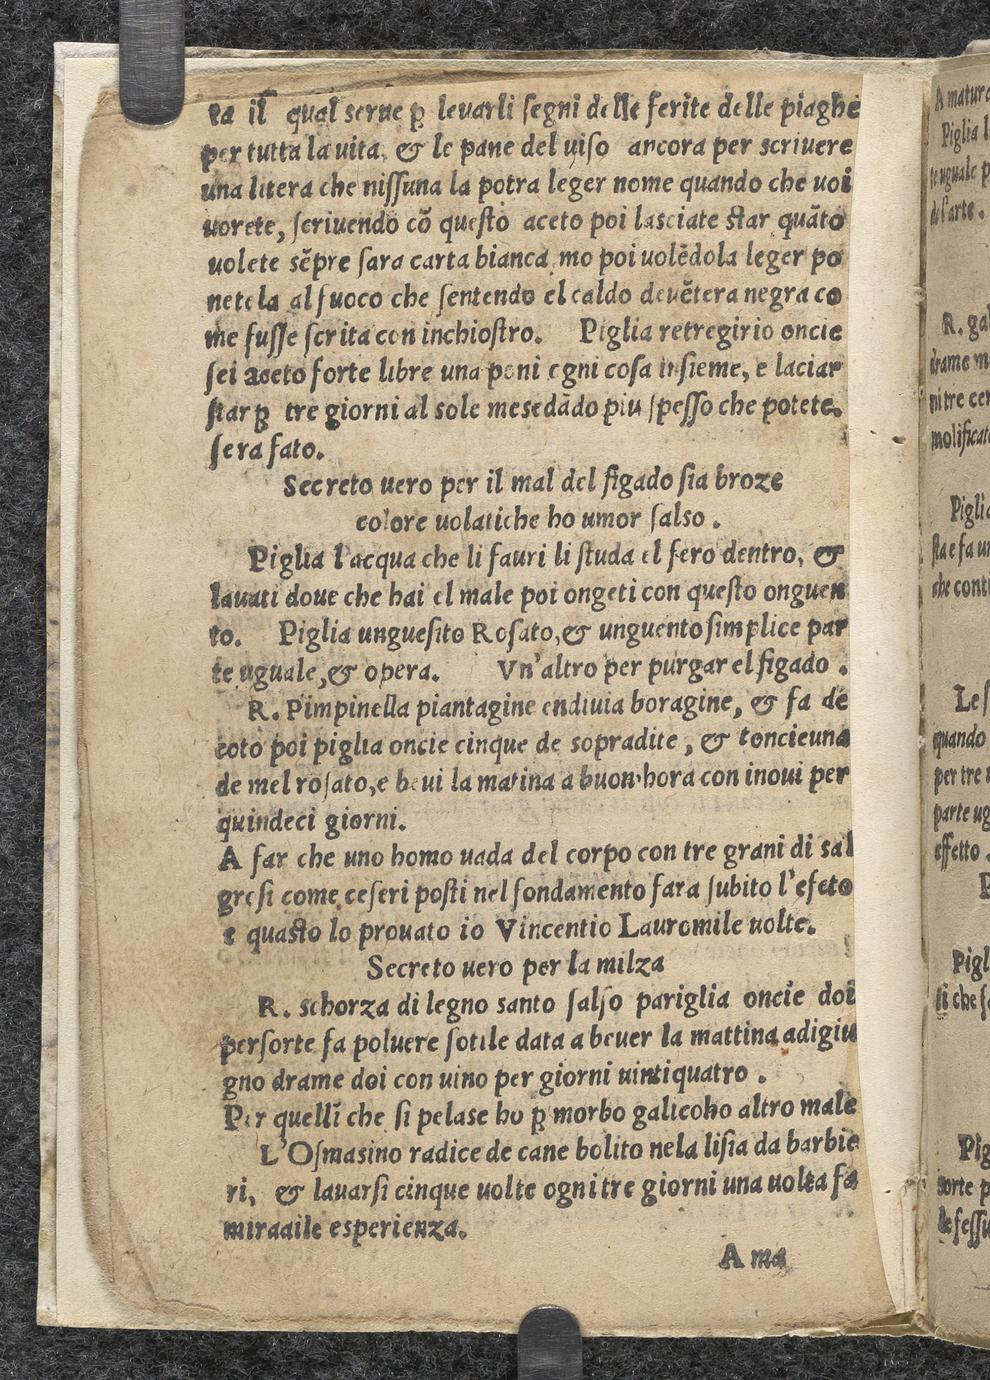 ta il qual serue ꝑ leuarli segni delle ferite delle piaghe
per tutta la uita, & le pane del uiso ancora per scriuere
una litera che nissuna la potra leger nome quando che uoi
uorete, scriuendo cõ questo aceto poi lasciate star quãto
uolete sẽpre sara carta bianca mo poi uolẽdola leger po
netela al fuoco che sentendo el caldo deuẽtera negra co
me fusse scrita con inchiostro. Piglia retregirio oncie
sei aceto forte libre una poni ogni cosa insieme, e laciar
star ꝑ tre giorni al sole mesedãdo piu spesso che potete.
sera fato.
Secreto uero per il mal del figado sia broze
colore uolatiche ho umor salso.
Piglia l'acqua che li fauri li studa el fero dentro, &
lauati doue che hai el male poi ongeti con questo onguen
to. Piglia unguesito Rosato, & unguento simplice par
te uguale, & opera. Vn'altro per purgar el figado.
R. Pimpinella piantagine endiuia boragine, & fa de
coto poi piglia oncie cinque de sopradite, & toncieuna
de mel rosato, e beui la matina a buon'hora con inoui per
quindeci giorni.
A far che uno homo uada del corpo con tre grani di sal
grosi come ceseri posti nel fondamento fara subito l'efeto
e quasto lo prouato io Vincentio Lauromile uolte.
Secreto uero per la milza
R. schorza di legno santo salso pariglia oncie doi
persorte fa poluere sotile data a beuer la mattina adigiu
gno drame doi con uino per giorni uintiquatro.
Per quelli che si pelase ho ꝑ morbo galicoho altro male
L'Osmasino radice de cane bolito nela lisia da barbie
ri, & lauarsi cinque uolte ogni tre giorni una uolta fa
miraaile esperienza.
A ma
A matura
Piglia l
te uguale p
de l'arte.
R. gal
drame m
ni tre cer
molificat
Piglia
sta e fa un
che conti
Le s
quando
per tre
parte ug
effetto.
P
Pigl
li che f
Pig
sorte p
de fessu